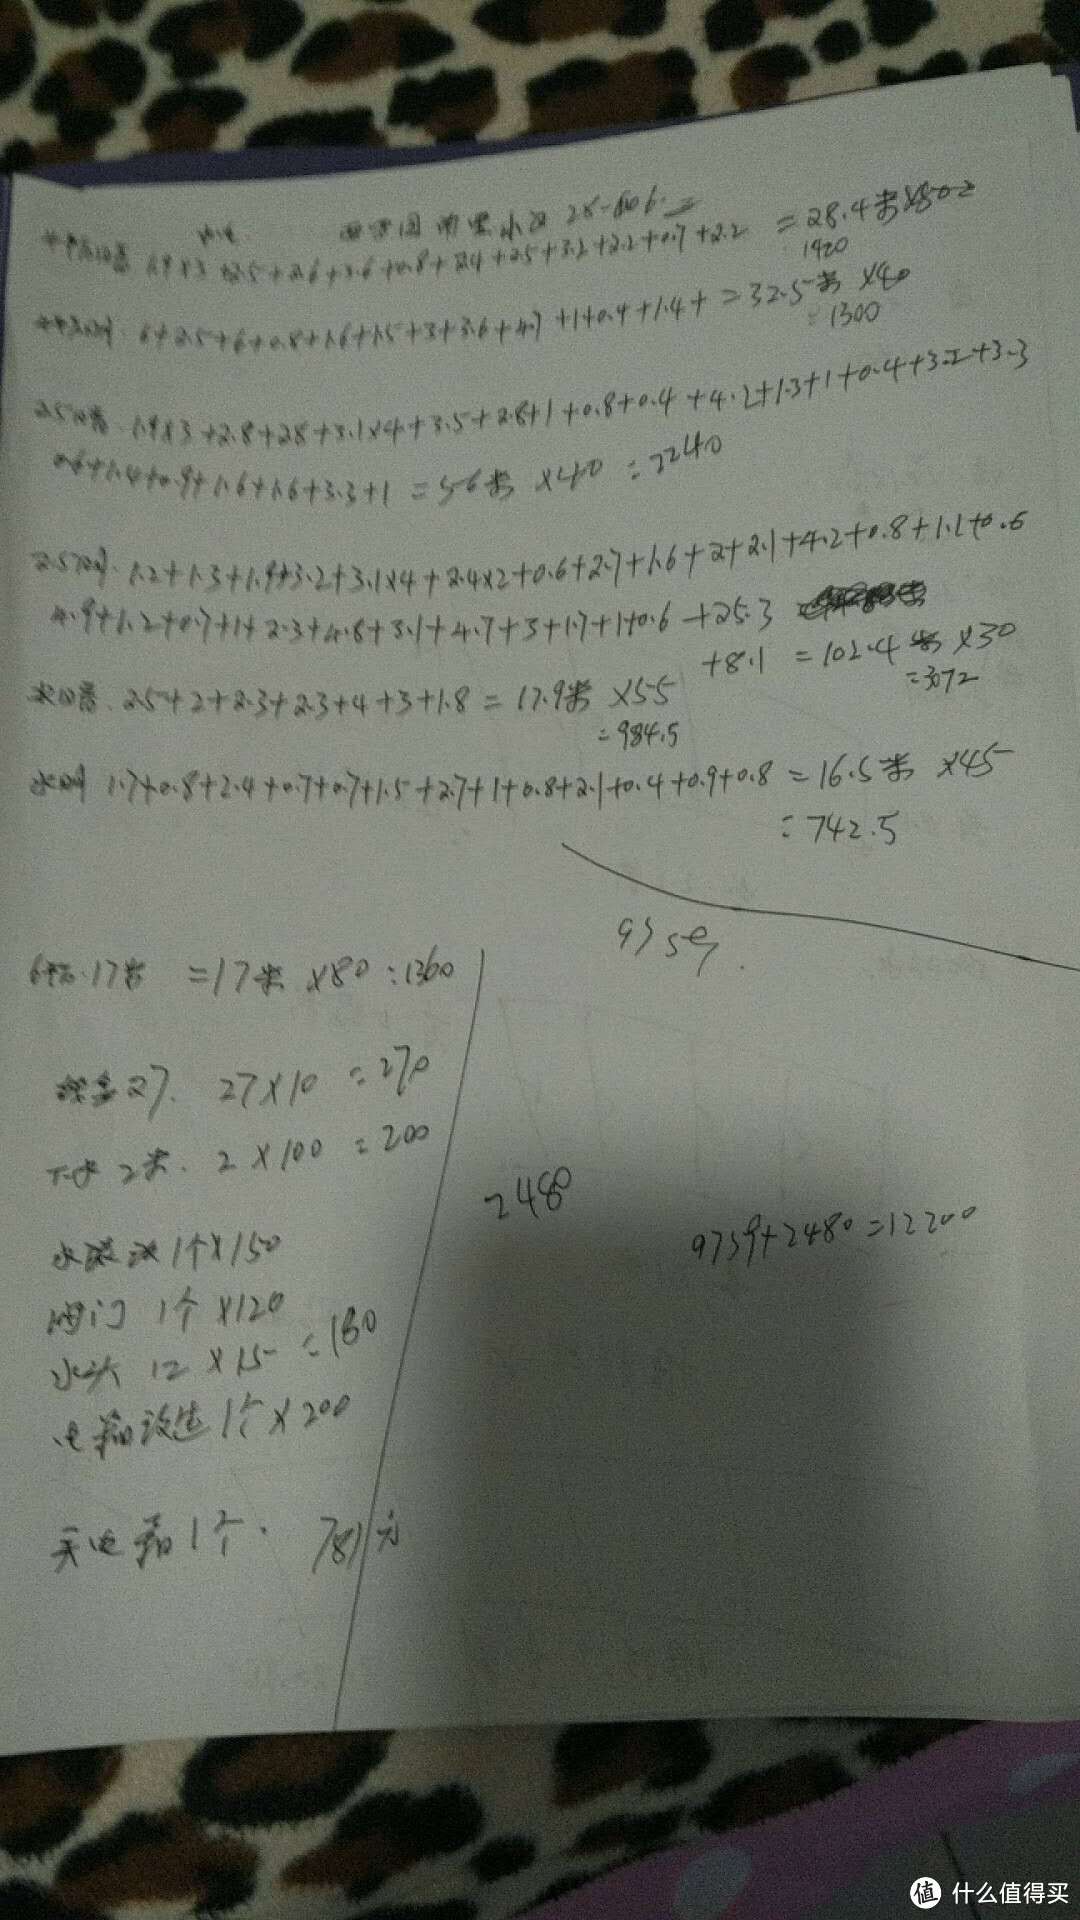 水电 西 园 小区 28-606
1.9×3+2.5+2.6+3.6+0.8+2.4+2.5+3.2+2.2+0.7+2.2 =28.4米×50
1420
6+2.5+6+0.8+1.6+1.5+3+3.6+4.7+1+0.4+1.4+ =32.5米×40
=1300
2.5 1.9×3+2.8+2.8+3.1×4+3.5+2.8+1+0.8+0.4+4.2+1.3+1+0.4+3.2+3.3
0.6+1.4+0.9+1.6+1.6+3.3+1 =56米×40=2240
2.5 1.2+1.3+1.9+3.2+3.1×4+2.4×2+0.6+2.7+1.6+2+2.1+4.2+0.8+1.1+0.6
4.9+1.2+0.7+1+2.3+4.8+3.1+4.7+3+1.7+1+0.6+25.3
+8.1 =102.4米×30
=3072
水 2.5+2+2.3+2.3+4+3+1.8=17.9米×55
=984.5
水 1.7+0.8+2.4+0.7+0.7+1.5+2.7+1+0.8+2.1+0.4+0.9+0.8=16.5米×45
=742.5
9759
17米 =17米×80=1360
27. 27×10=270
下水 2米. 2×100=200
2480
9759+2480=12200
1个×150
阀门 1个×120
水头 12×15=180
电箱改造 1个×200
买电箱1个. 781元
值 什么值得买